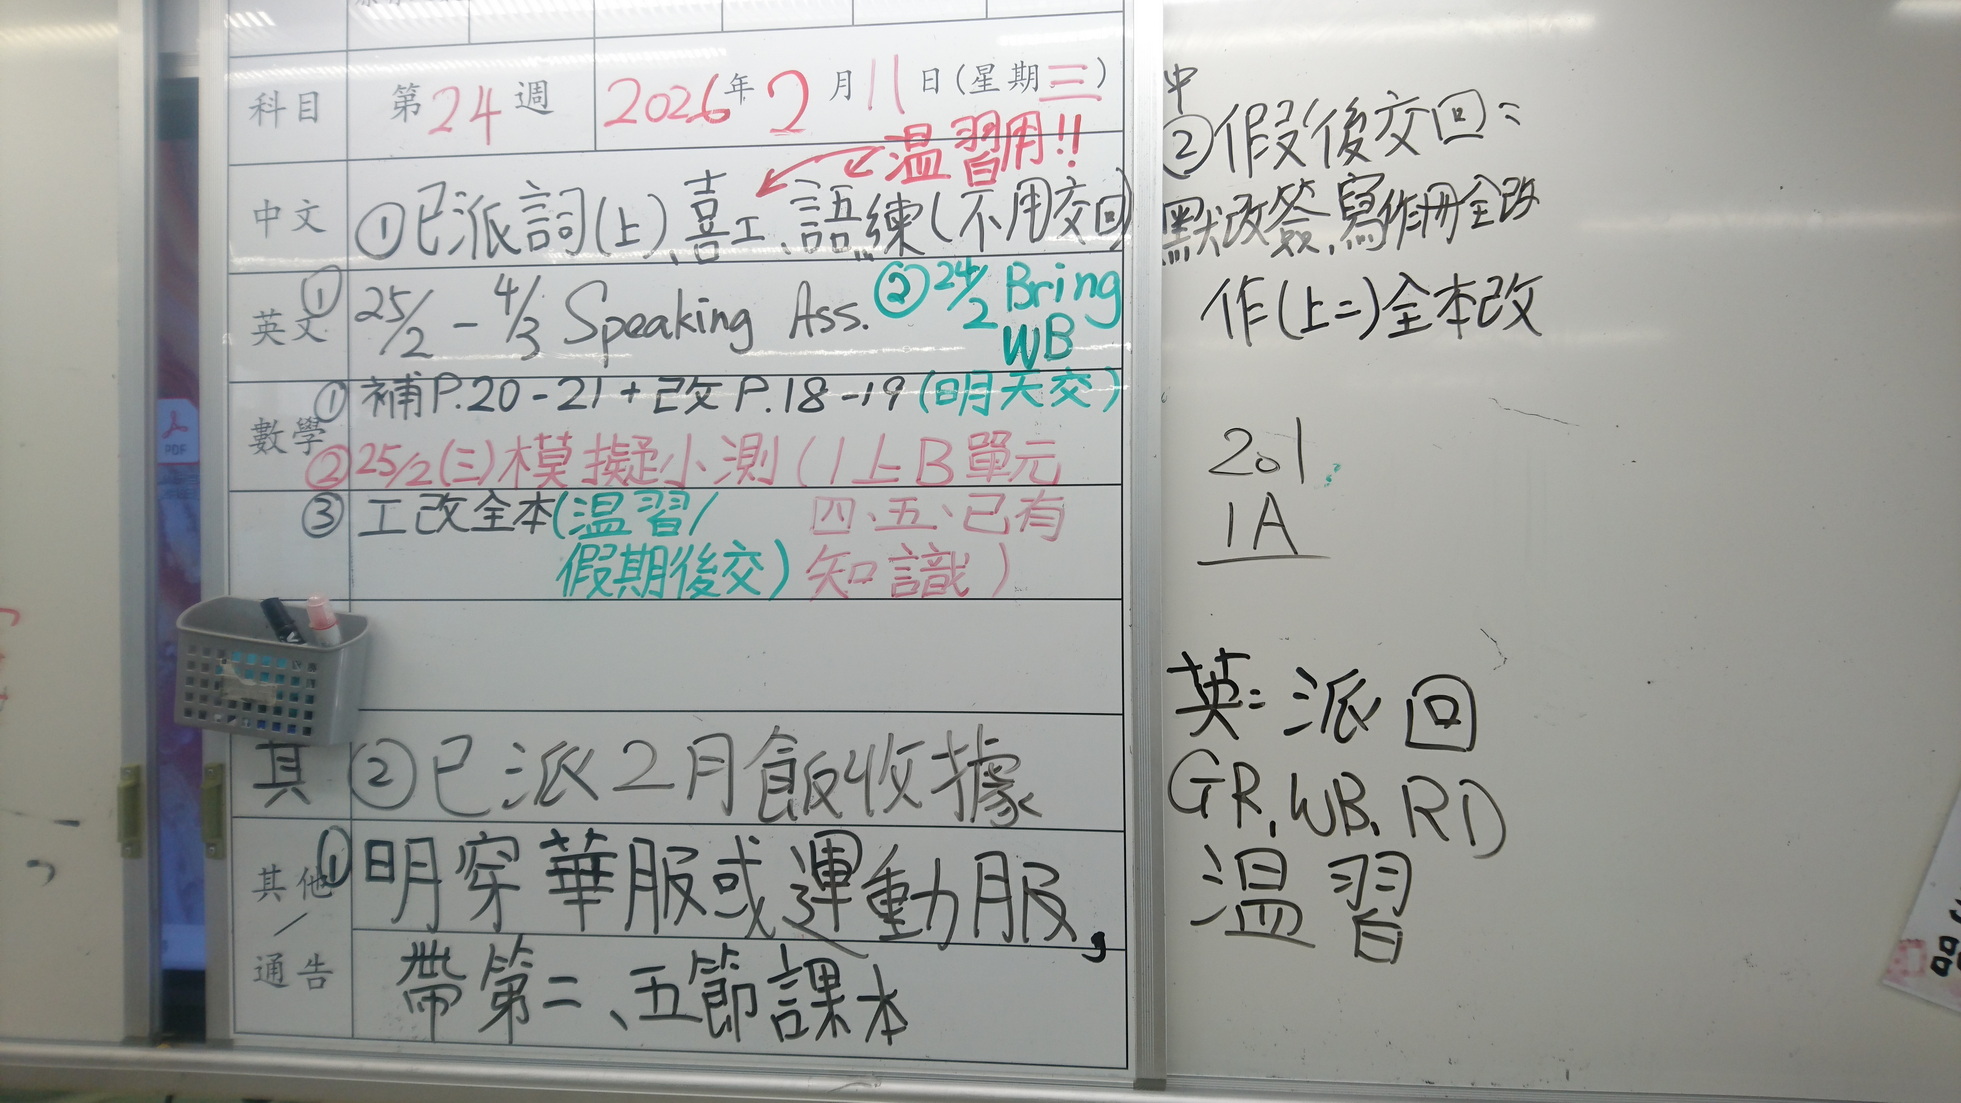 科目 第24週 2026年2月11日(星期三)
温習用!!
中文 ①已派詞(上)、喜工、語練(不用交回)
英文 ①25/2 - 4/3 Speaking Ass. ②24/2 Bring
WB
數學 ①補P.20-21+改P.18-19(明天交)
②25/2(三)模擬小測(1上B單元
四、五、已有
知識)
③工改全本(温習/
假期後交)
其 ②已派2月飯收據
其他/通告 ①明穿華服或運動服,
帶第二、五節課本
中
②假後交回:
默改簽,寫作冊全改
作(上二)全本改
201
1A
英:派回
GR,WB,RD
温習
PDF